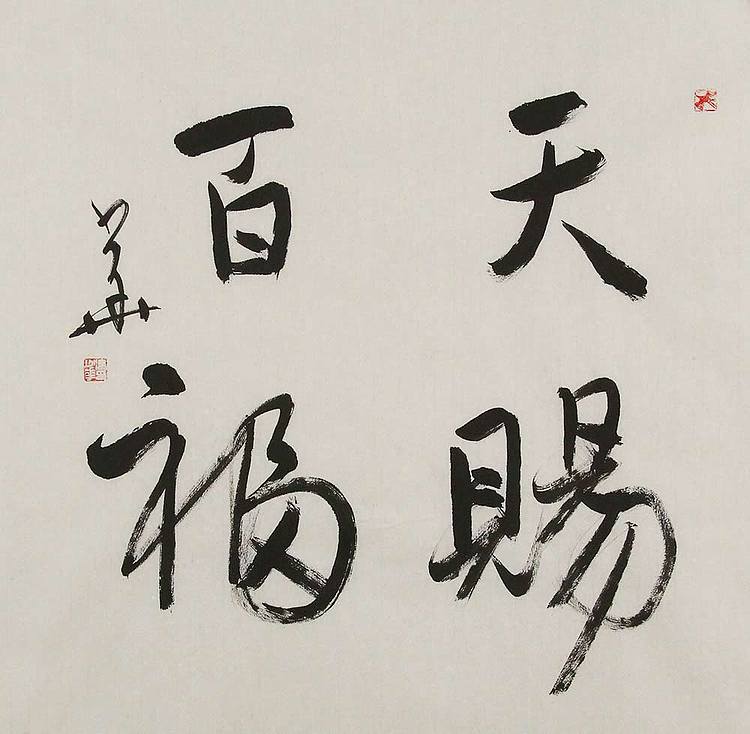 天賜
百福
華